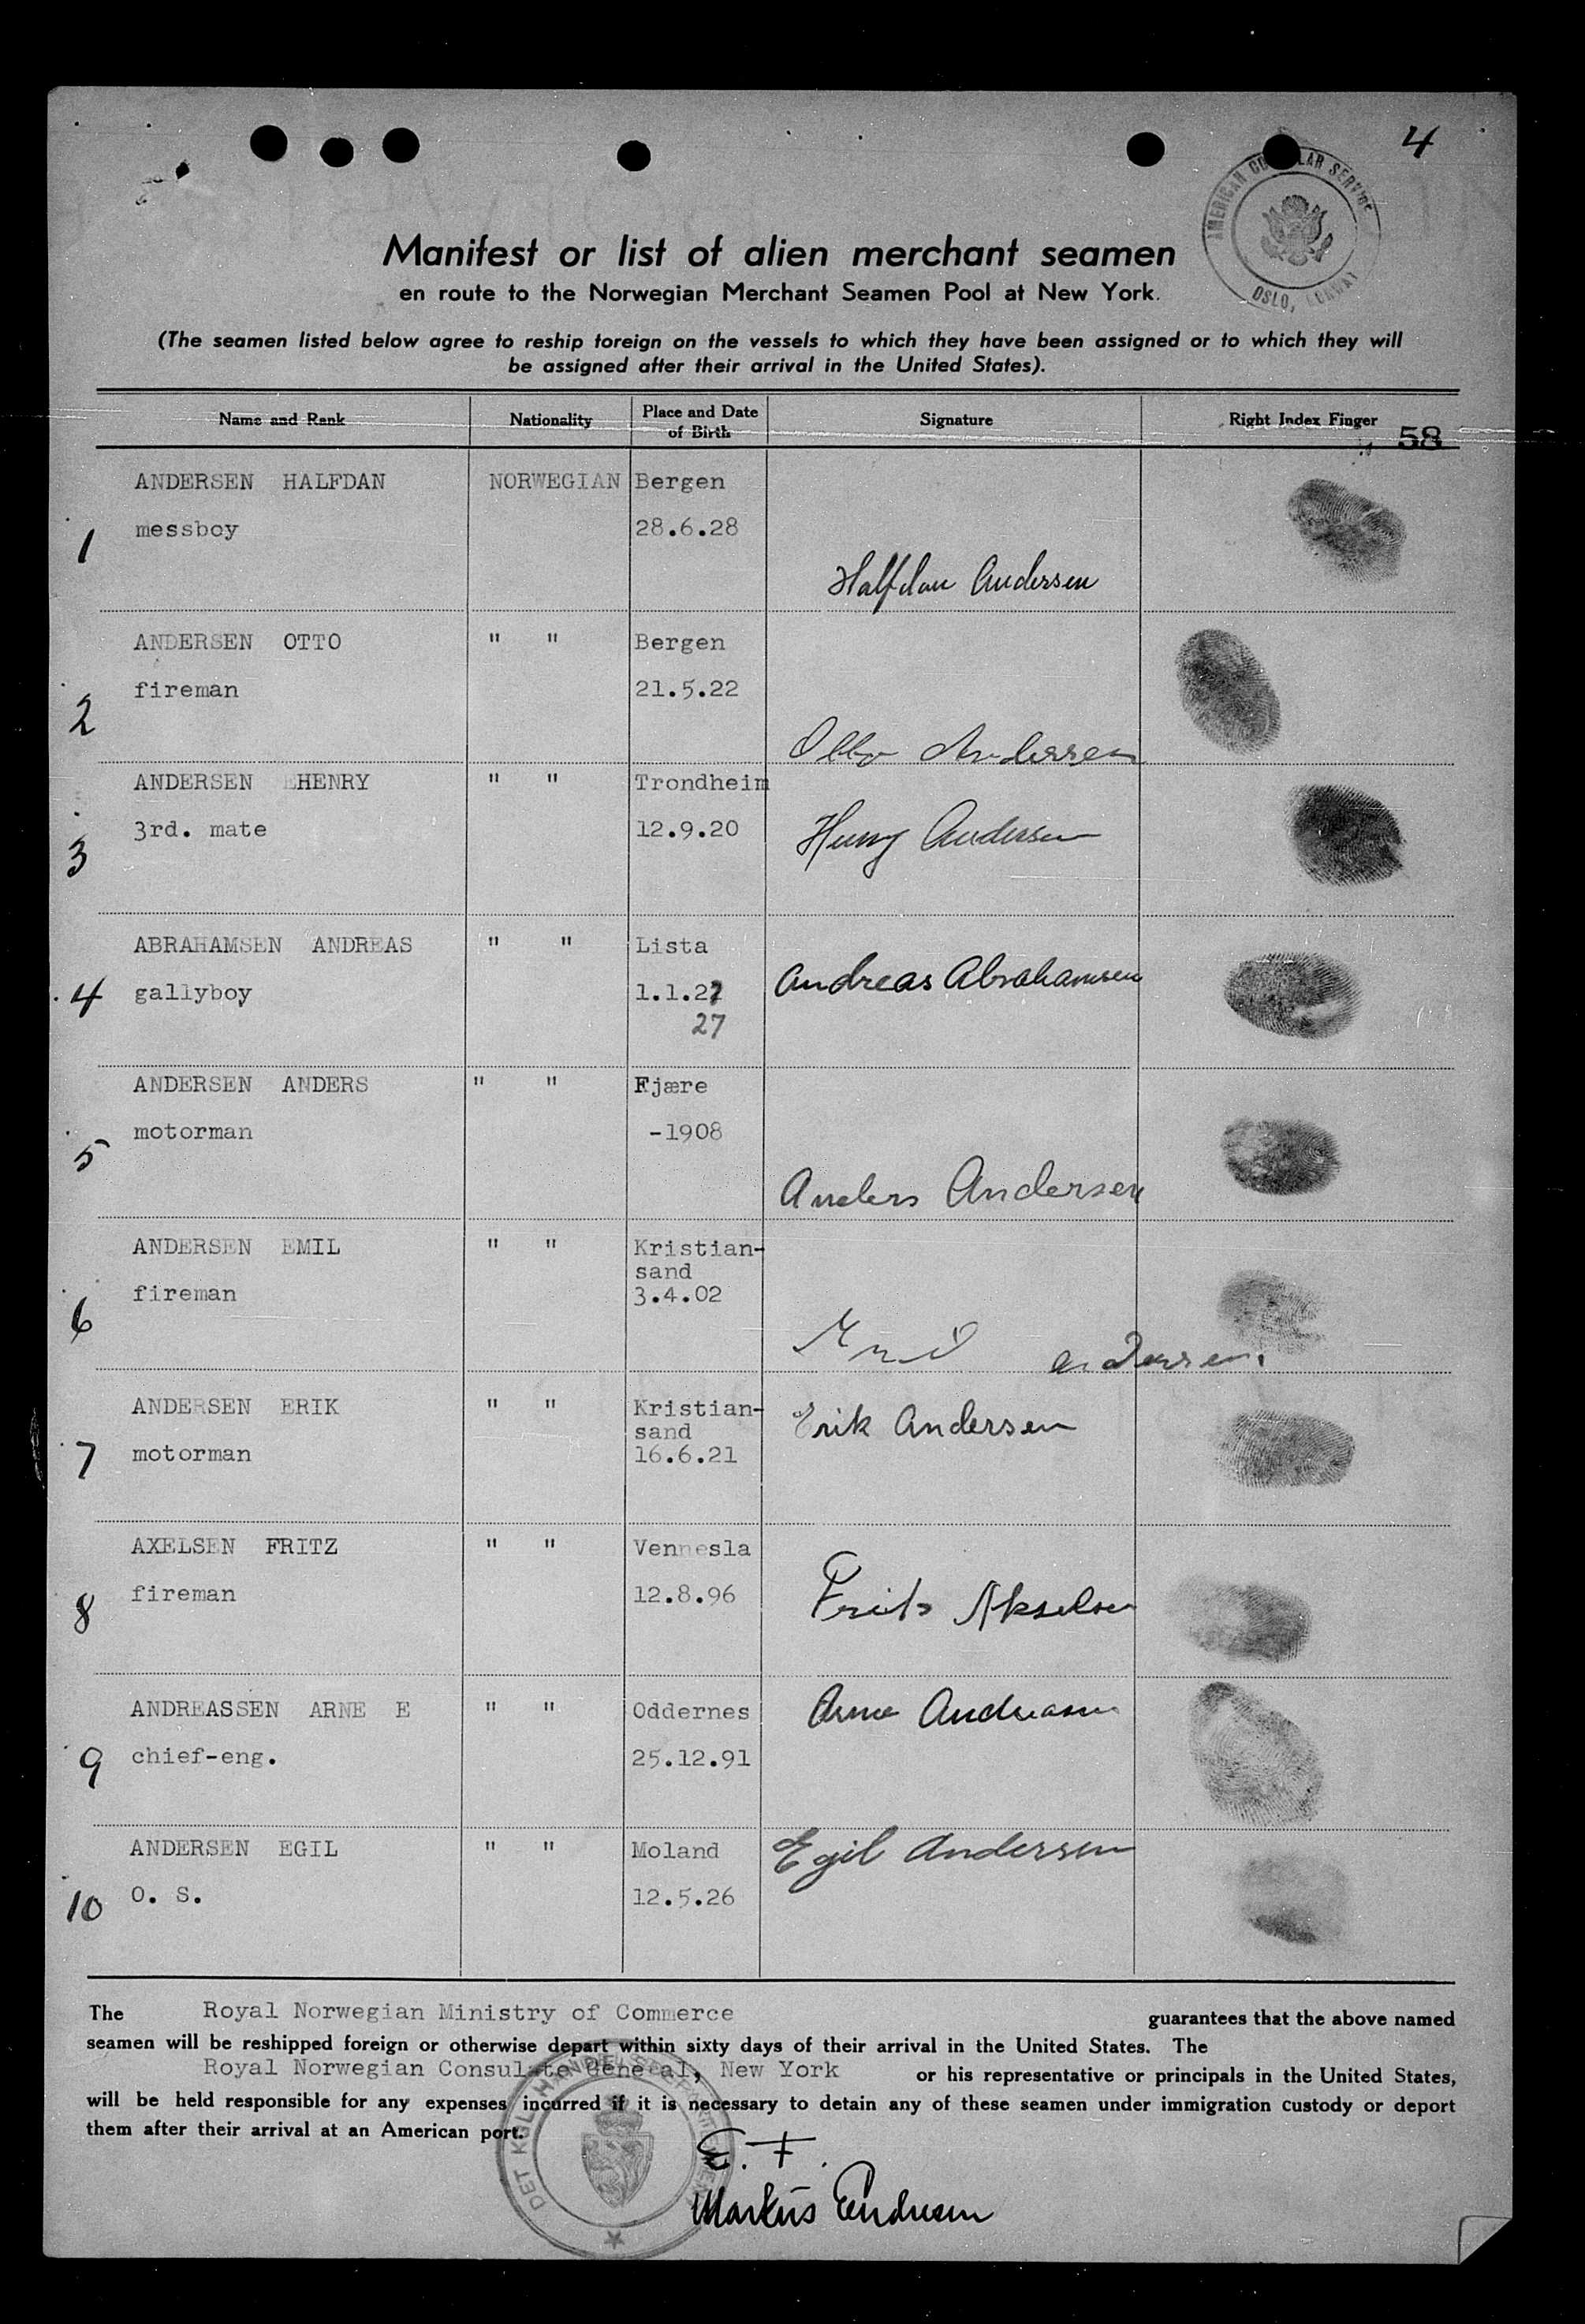 4
AMERICAN CONSULAR SERVICE
OSLO, NORWAY
Manifest or list of alien merchant seamen
en route to the Norwegian Merchant Seamen Pool at New York.
(The seamen listed below agree to reship foreign on the vessels to which they have been assigned or to which they will
be assigned after their arrival in the United States).
Name and Rank Nationality Place and Date of Birth Signature Right Index Finger
58
1 ANDERSEN HALFDAN NORWEGIAN Bergen
messboy 28.6.28
Halfdan Andersen
2 ANDERSEN OTTO " " Bergen
fireman 21.5.22
Otto Andersen
3 ANDERSEN HENRY " " Trondheim
3rd. mate 12.9.20 Henry Andersen
4 ABRAHAMSEN ANDREAS " " Lista
gallyboy 1.1.27 Andreas Abrahamsen
27
5 ANDERSEN ANDERS " " Fjære
motorman -1908
Anders Andersen
6 ANDERSEN EMIL " " Kristian-
sand
fireman 3.4.02
Emil andersen.
7 ANDERSEN ERIK " " Kristian-
sand Erik Andersen
motorman 16.6.21
8 AXELSEN FRITZ " " Vennesla
fireman 12.8.96 Frits Akselsen
9 ANDREASSEN ARNE E " " Oddernes Arne Andreassen
chief-eng. 25.12.91
10 ANDERSEN EGIL " " Moland Egil Andersen
O. S. 12.5.26
The Royal Norwegian Ministry of Commerce guarantees that the above named
seamen will be reshipped foreign or otherwise depart within sixty days of their arrival in the United States. The
Royal Norwegian Consulate General, New York or his representative or principals in the United States,
will be held responsible for any expenses incurred if it is necessary to detain any of these seamen under immigration custody or deport
them after their arrival at an American port.
DET KGL. HANDELSDEPARTEMENT
E. F.
Markus